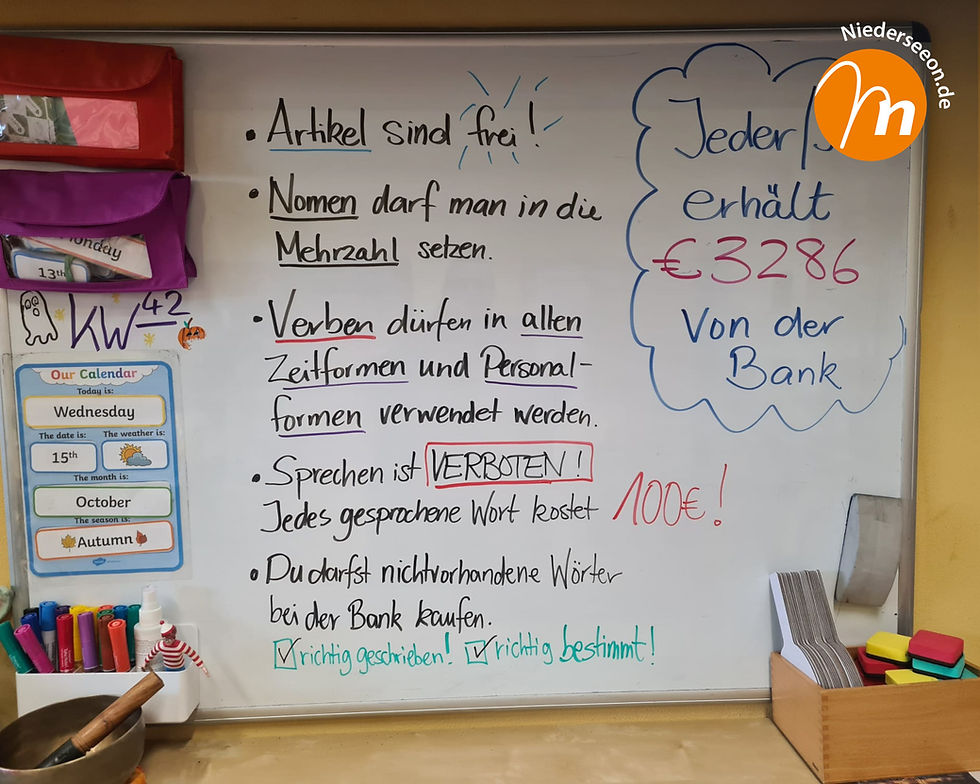 Niederseeon.de
• Artikel sind frei!
• Nomen darf man in die
Mehrzahl setzen.
• Verben dürfen in allen
Zeitformen und Personal-
formen verwendet werden.
• Sprechen ist VERBOTEN!
Jedes gesprochene Wort kostet 100€!
• Du darfst nichtvorhandene Wörter
bei der Bank kaufen.
richtig geschrieben! richtig bestimmt!
Jeder
erhält
€3286
von der
Bank
Monday
13th
KW 42
Our Calendar
Today is:
Wednesday
The date is: The weather is:
15th
The month is:
October
The season is:
Autumn